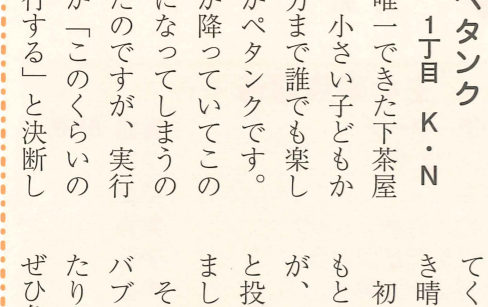 ペタンク
1丁目 K・N
唯一できた下茶屋
小さい子どもか
方まで誰でも楽し
がペタンクです。
が降っていてこの
になってしまうの
たのですが、実行
が「このくらいの
行する」と決断し
てく
き晴
初
もと
が、
と投
まし
そ
バブ
たり
ぜひ